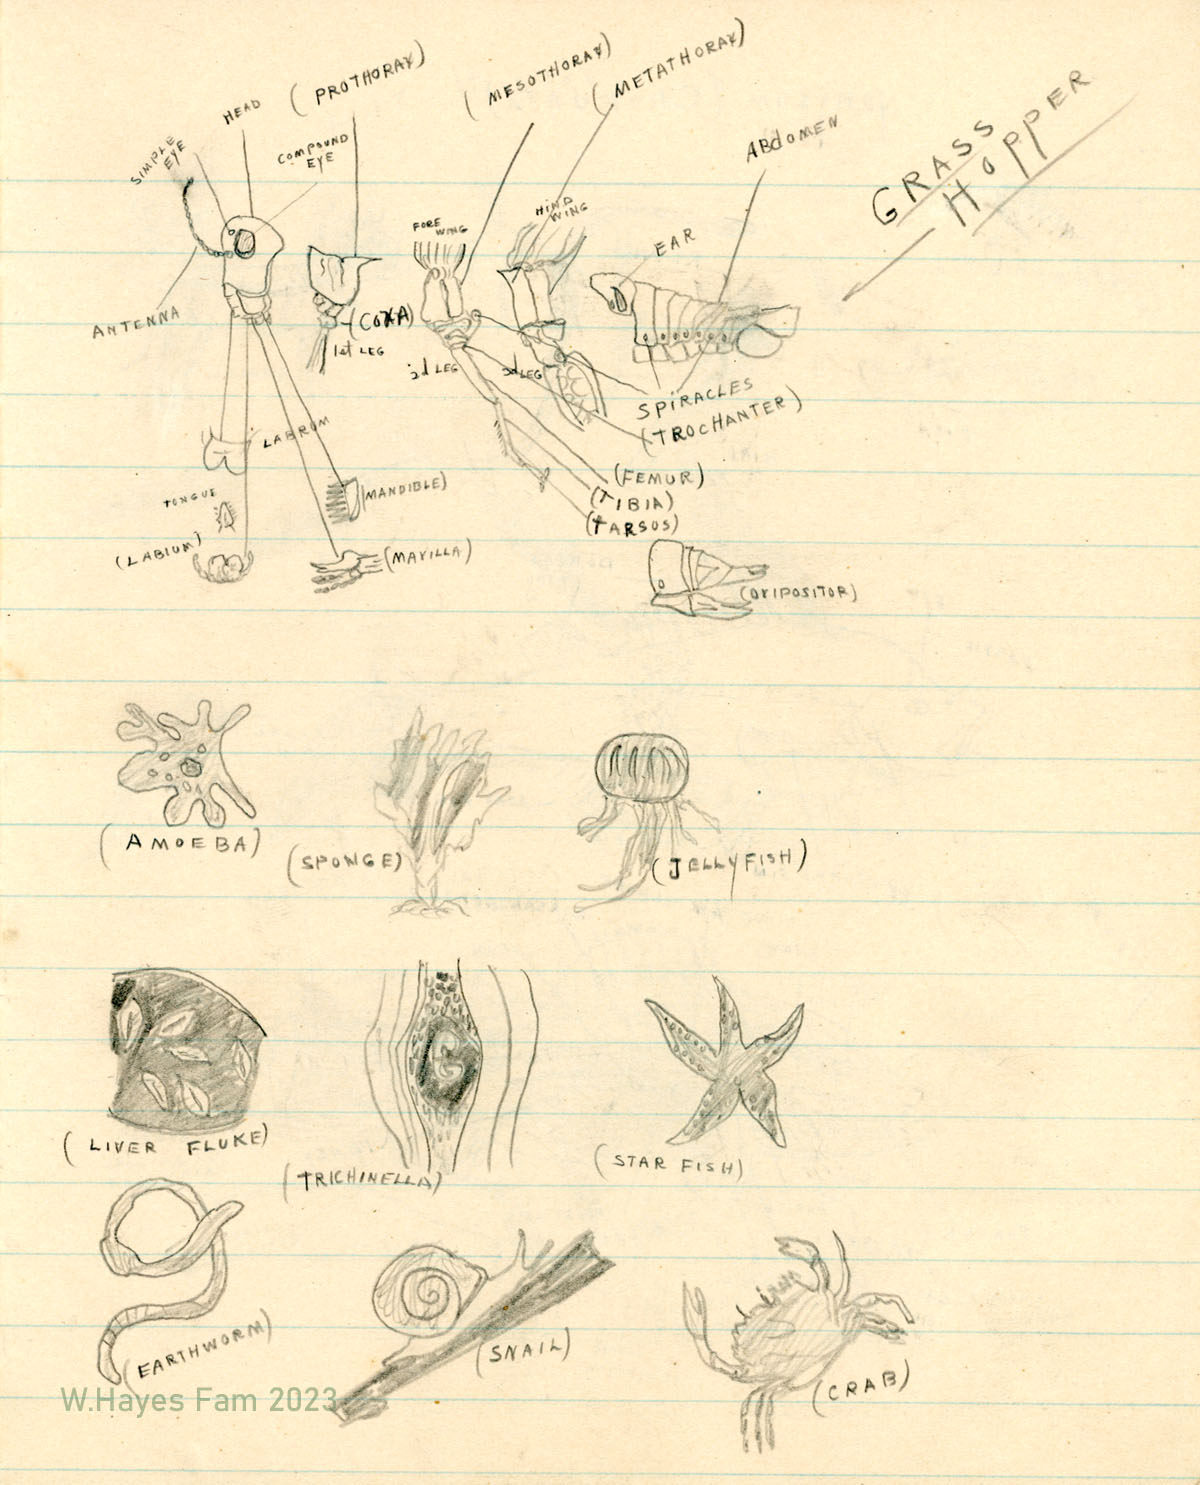 GRASS
HOPPER
HEAD
(PROTHORAX)
(MESOTHORAX)
(METATHORAX)
ABdOMEN
SIMPLE
EYE
COMPOUND
EYE
FORE
WING
HIND
WING
EAR
ANTENNA
(COXA)
1st LEG
2d LEG
3d LEG
SPIRACLES
(TROCHANTER)
LABRUM
(FEMUR)
(MANDIBLE)
(TIBIA)
TONGUE
(TARSOS)
(LABIUM)
(MAXILLA)
(OVIPOSITOR)
(AMOEBA)
(SPONGE)
(JELLYFISH)
(LIVER FLUKE)
(TRICHINELLA)
(STAR FISH)
(EARTHWORM)
(SNAIL)
(CRAB)
W.Hayes Fam 2023